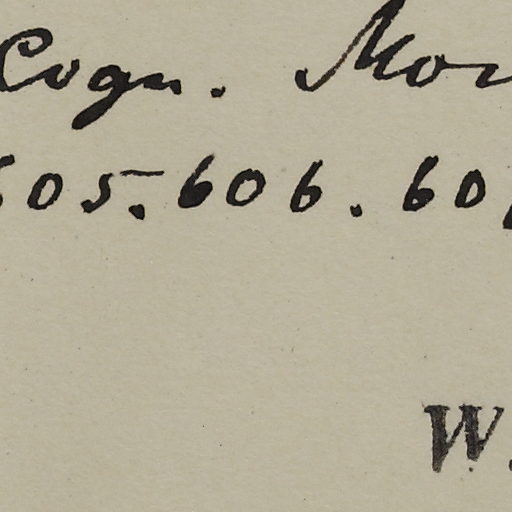 Cogn. Mon
605. 606. 60
W.